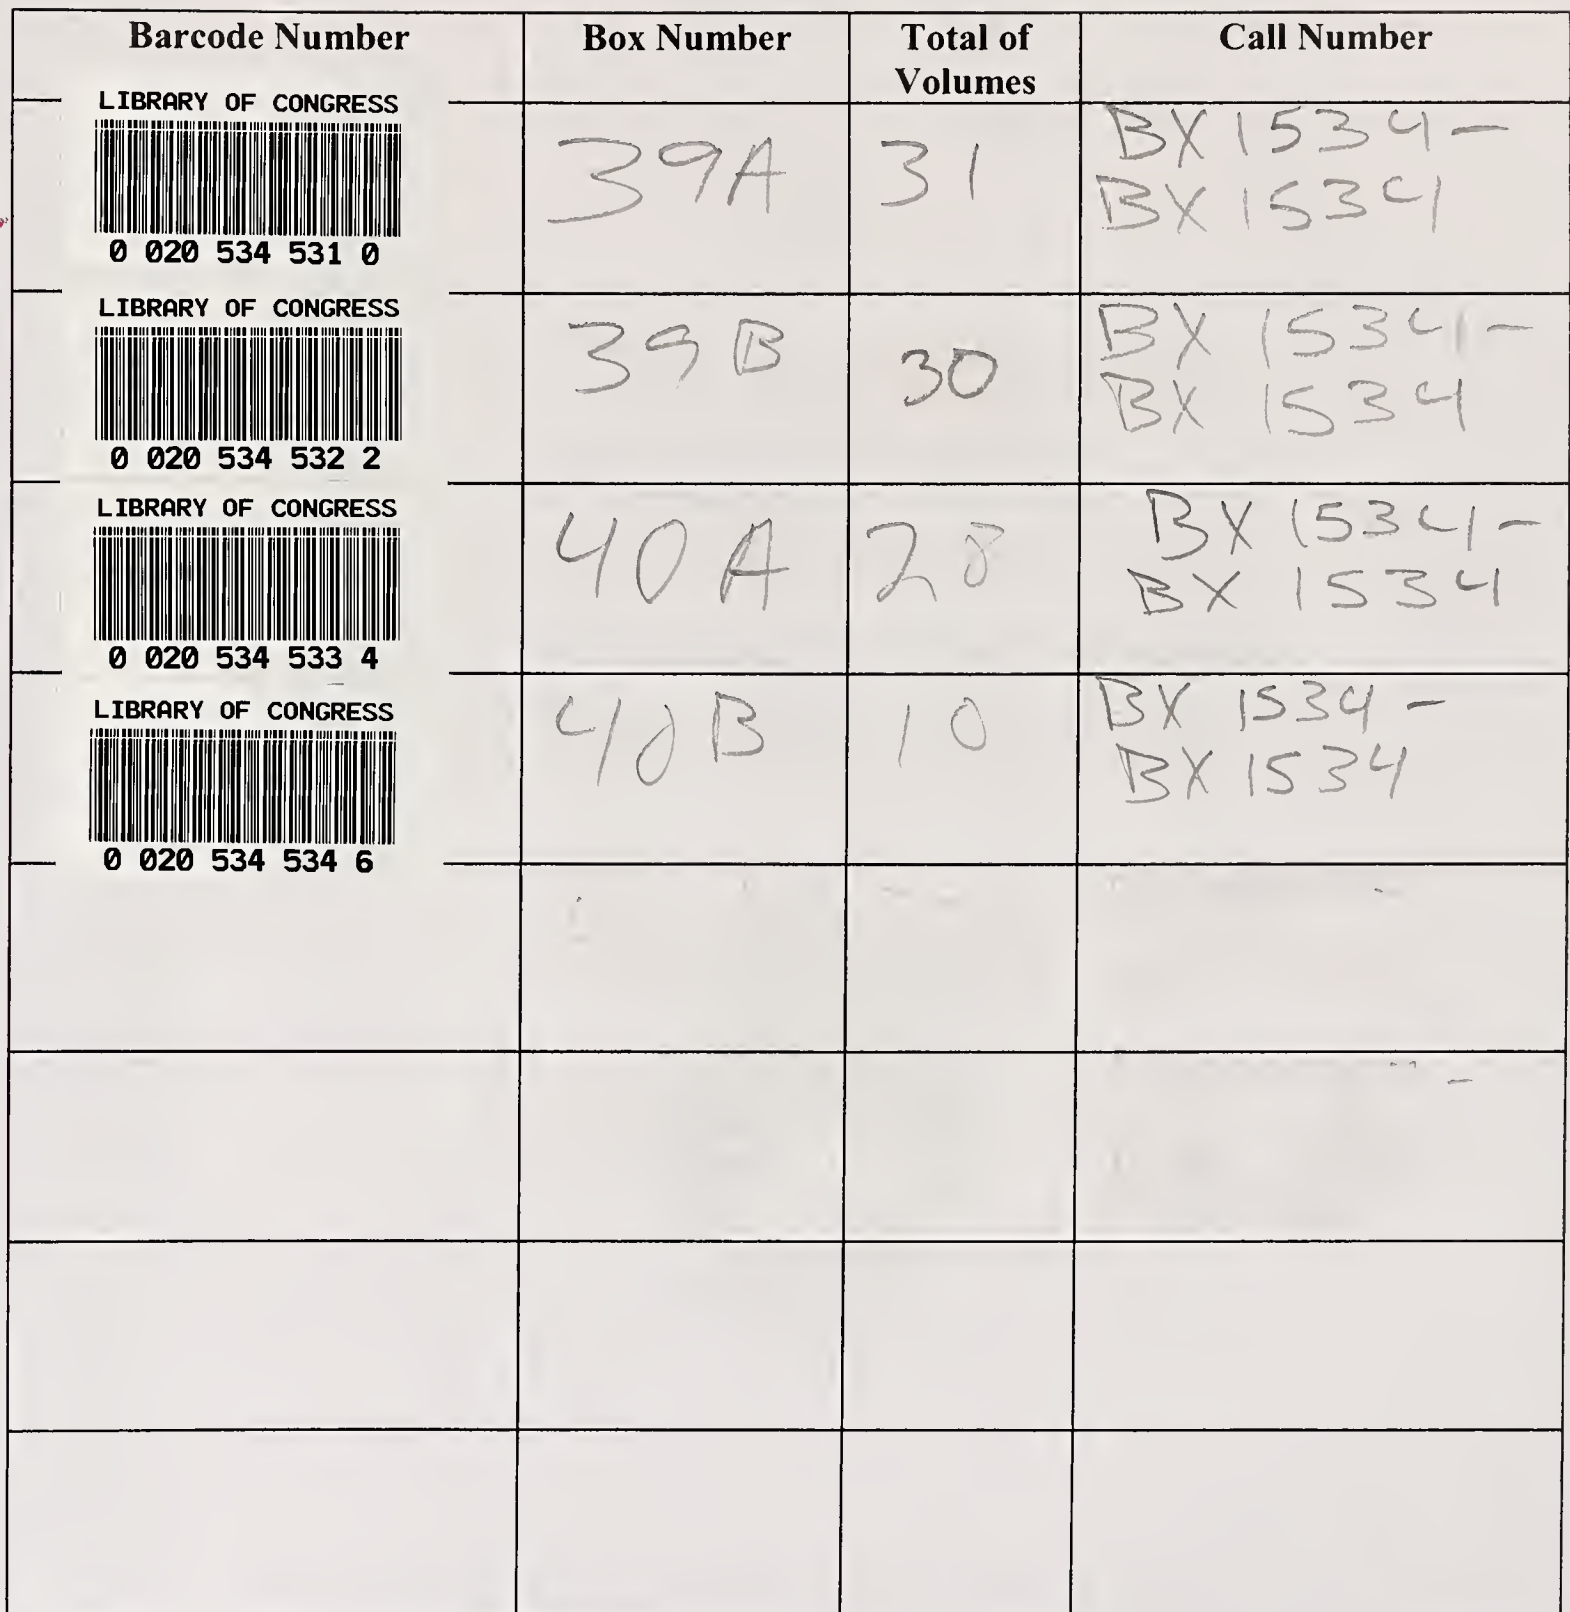 Barcode Number Box Number Total of Call Number
Volumes
LIBRARY OF CONGRESS
0 020 534 531 0
39A 31 BX 1534-
BX 1534
LIBRARY OF CONGRESS
0 020 534 532 2
39B 30 BX 1534-
BX 1534
LIBRARY OF CONGRESS
0 020 534 533 4
40A 28 BX 1534-
BX 1534
LIBRARY OF CONGRESS
0 020 534 534 6
40B 10 BX 1534-
BX 1534